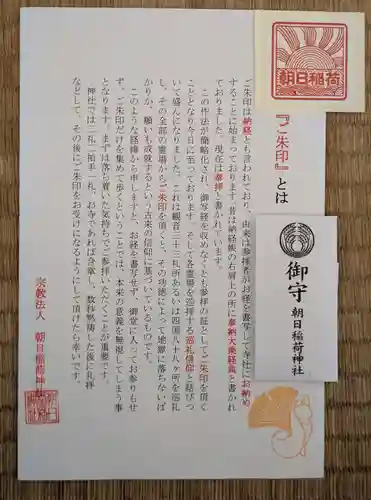 朝日稲荷
『ご朱印』とは
ご朱印は納経とも言われており、由来は参拝者がお経を書写して寺社にお納め
することに始まっております。昔は納経帳の右肩上の所に奉納大乗経典と書かれ
ておりました。現在は奉拝と書かれています。
この作法が簡略化され、御写経を収めなくとも参拝の証としてご朱印を頂く
こととなり今日に至っております。そして各霊場を巡拝する巡礼信仰と結びつ
いて盛んになりました。これは観音三十三札所あるいは四国八十八ヶ所を巡礼
し、その全部の霊場からご朱印を頂くと、その功徳によって地獄に落ちないば
かりか、願いも成就するという古来の信仰に基づいているものです。
このような経緯から申しますと、お経を書写せず、御堂に入ってお参りもせ
ず、ご朱印だけを集めて歩くということでは、本来の意義を無視してしまう事
となります。まずは落ち着いた気持ちでご参拝いただくことが重要です。
神社では二礼二拍手一礼、お寺であれば合掌し、数秒黙祷した後に礼拝
などして、その後にご朱印をお受けになるようにして頂けたら幸いです。
宗教法人 朝日稲荷神
御守 朝日稲荷神社